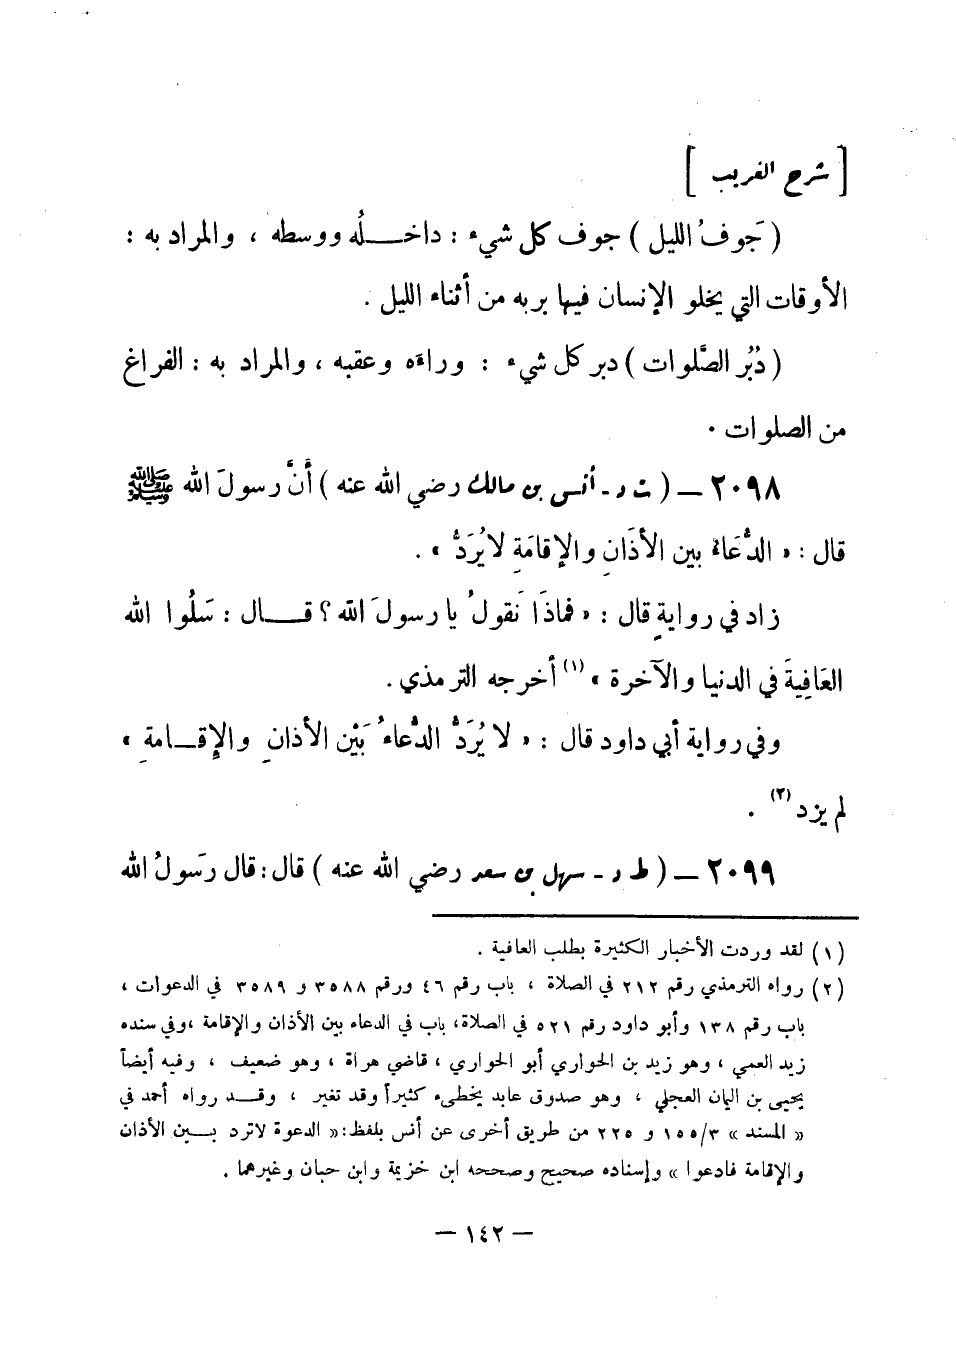 [ شرح الغريب ]
( جَوفُ الليل ) جوف كل شيء : داخـــلُه ووسطه ، والمراد به :
الأوقات التي يخلو الإنسان فيها بربه من أثناء الليل .
( دُبُر الصَّلوات ) دبر كل شيء : وراءَه وعقبه ، والمراد به : الفراغ
من الصلوات .
٢٠٩٨ – ( ت د - أنس بن مالك رضي الله عنه ) أَنَّ رسولَ الله ﷺ
قال : « الدُّعَاءُ بين الأذَانِ والإقامَةِ لا يُرَدُّ » .
زاد في روايةٍ قال : « فماذَا نَقولُ يا رسولَ الله ؟ قـــال : سَلُوا الله
العَافِيةَ في الدنيا والآخرة » (١) أخرجه الترمذي .
وفي رواية أبي داود قال : « لا يُرَدُّ الدُّعاءُ بَيْن الأذانِ والإِقـامةِ »
لم يزد (٢) .
٢٠٩٩ – ( ط د - سهل بن سعد رضي الله عنه ) قال : قال رسَولُ الله
(١) لقد وردت الأخبار الكثيرة بطلب العافية .
(٢) رواه الترمذي رقم ٢١٢ في الصلاة ، باب رقم ٤٦ ورقم ٣٥٨٨ و ٣٥٨٩ في الدعوات ،
باب رقم ١٣٨ وأبو داود رقم ٥٢١ في الصلاة، باب في الدعاء بين الأذان والإقامة ،وفي سنده
زيد العمي ، وهو زيد بن الحواري أبو الحواري ، قاضي هراة ، وهو ضعيف ، وفيه أيضاً
يحيى بن اليمان العجلي ، وهو صدوق عابد يخطىء كثيراً وقد تغير ، وقـــد رواه أحمد في
« المسند » ١٥٥/٣ و ٢٢٥ من طريق أخرى عن أنس بلفظ: « الدعوة لاترد بـــين الأذان
والإقامة فادعوا » وإسناده صحيح وصححه ابن خزيمة وابن حبان وغيرهما .
– ١٤٢ –